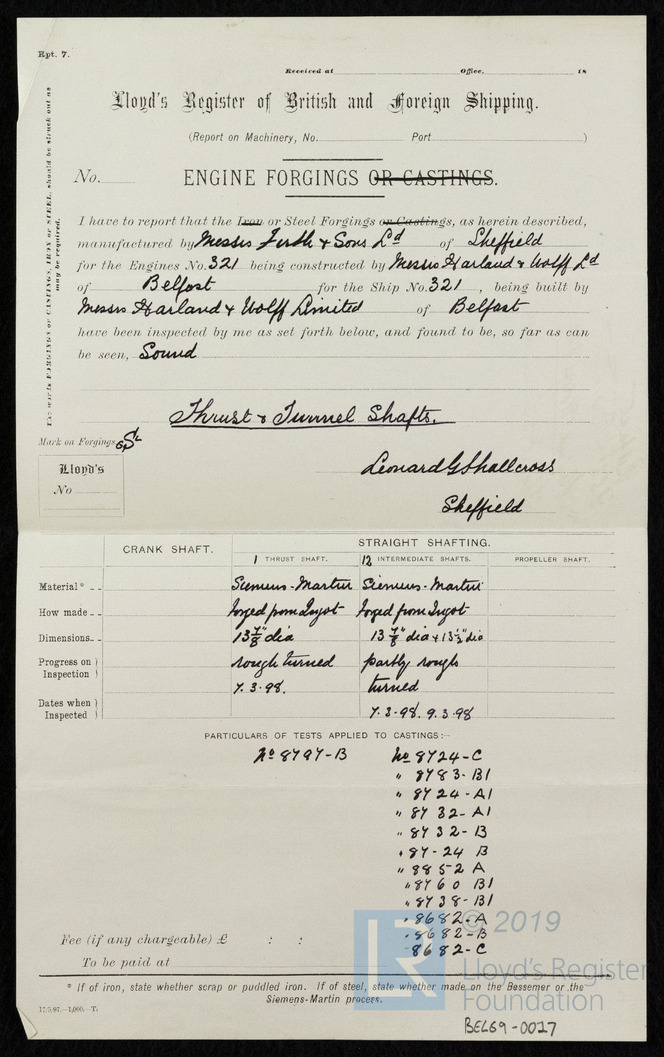 Rpt. 7.
Received at Office. 18
Lloyd's Register of British and Foreign Shipping.
(Report on Machinery, No. Port )
No. ENGINE FORGINGS OR CASTINGS.
The words FORGINGS or CASTINGS, IRON or STEEL, should be struck out as
may be required.
I have to report that the Iron or Steel Forgings or Castings, as herein described,
manufactured by Messrs Firth & Sons Ld of Sheffield
for the Engines No. 321 being constructed by Messrs Harland & Wolff Ld
of Belfast for the Ship No. 321, being built by
Messrs Harland & Wolff Limited of Belfast
have been inspected by me as set forth below, and found to be, so far as can
be seen, Sound
Thrust & Tunnel Shafts.
Mark on Forgings
Lloyd's
No
Leonard G Shallcross
Sheffield
CRANK SHAFT. STRAIGHT SHAFTING.
1 THRUST SHAFT. 12 INTERMEDIATE SHAFTS. PROPELLER SHAFT.
Material* Siemens-Martin Siemens-Martin
How made forged from Ingot forged from Ingot
Dimensions 13 7/8" dia 13 7/8" dia & 13 1/2" dia
Progress on Inspection rough turned partly rough
turned
Dates when Inspected 7.3.98. 7.3.98. 9.3.98
PARTICULARS OF TESTS APPLIED TO CASTINGS:—
No 8797-B No 8724-C
" 8783-B1
" 8724-A1
" 8732-A1
" 8732-B
" 87-24 B
" 8852 A
" 8760 B1
" 8738-B1
" 8682-A
" 8682-B
" 8682-C
Fee (if any chargeable) £ : :
To be paid at
* If of iron, state whether scrap or puddled iron. If of steel, state whether made on the Bessemer or the
Siemens-Martin process.
17/9/97.—1,000.—T.
© 2019
LR
Lloyd's Register
Foundation
BEL69-0017